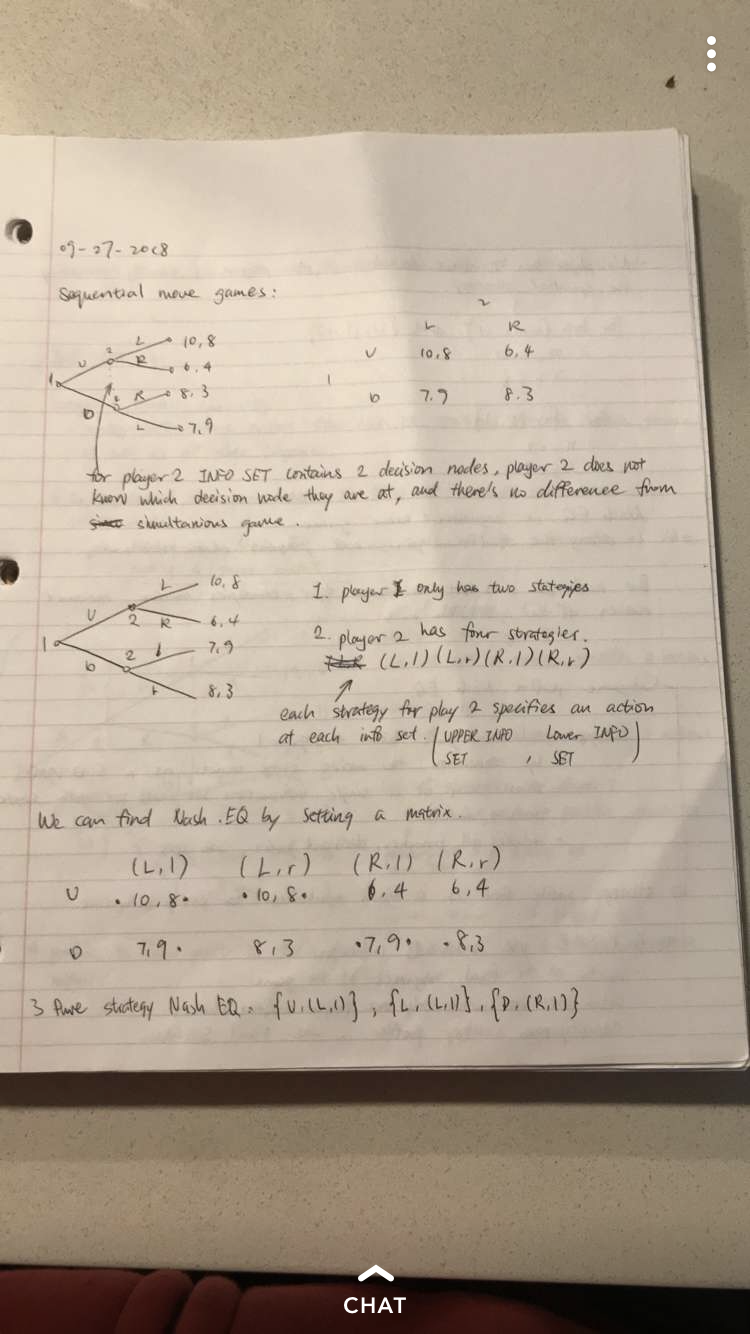 09-27-2018
Sequential move games:
2
L R
U 10,8 6,4
1
D 7,9 8,3
1 U 2 L 10,8
R 6,4
D 2 R 8,3
L 7,9
for player 2 INFO SET contains 2 decision nodes, player 2 does not
know which decision node they are at, and there's no difference from
simultanious game.
1 U 2 L 10,8
R 6,4
D 2 l 7,9
r 8,3
1. player 1 only has two stategies
2. player 2 has four strategies.
(L,l) (L,r) (R,l) (R,r)
each strategy for play 2 specifies an action
at each info set. (UPPER INFO SET, Lower INFO SET)
We can find Nash.EQ by setting a matrix.
(L,l) (L,r) (R,l) (R,r)
U •10,8• •10,8• 6,4 6,4
D 7,9• 8,3 •7,9• •8,3
3 Pure strategy Nash EQ. {U,(L,l)}, {L,(L,l)}, {D,(R,l)}
CHAT